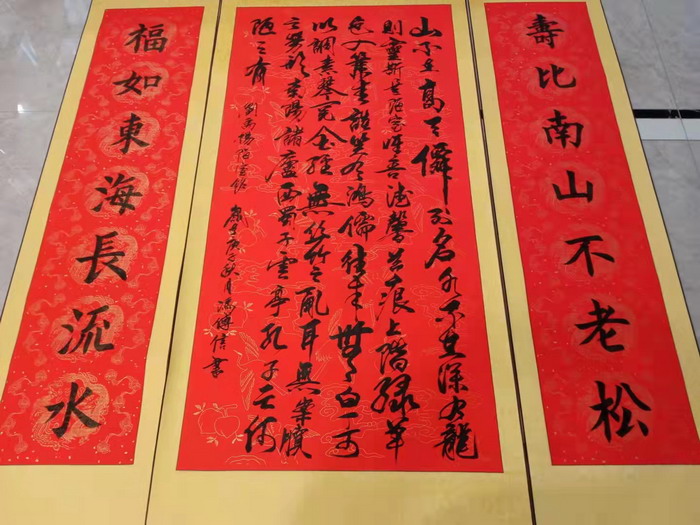 壽比南山不老松
山不在高有僊則名水不在深有龍
則靈斯是陋室唯吾德馨苔痕上階綠草
色入簾青談笑有鴻儒往來無白丁可
以調素琴閱金經無絲竹之亂耳無案牘
之勞形南陽諸廬西蜀子雲亭孔子云何
陋之有 劉禹錫陋室銘 庚子秋月 書
福如東海長流水